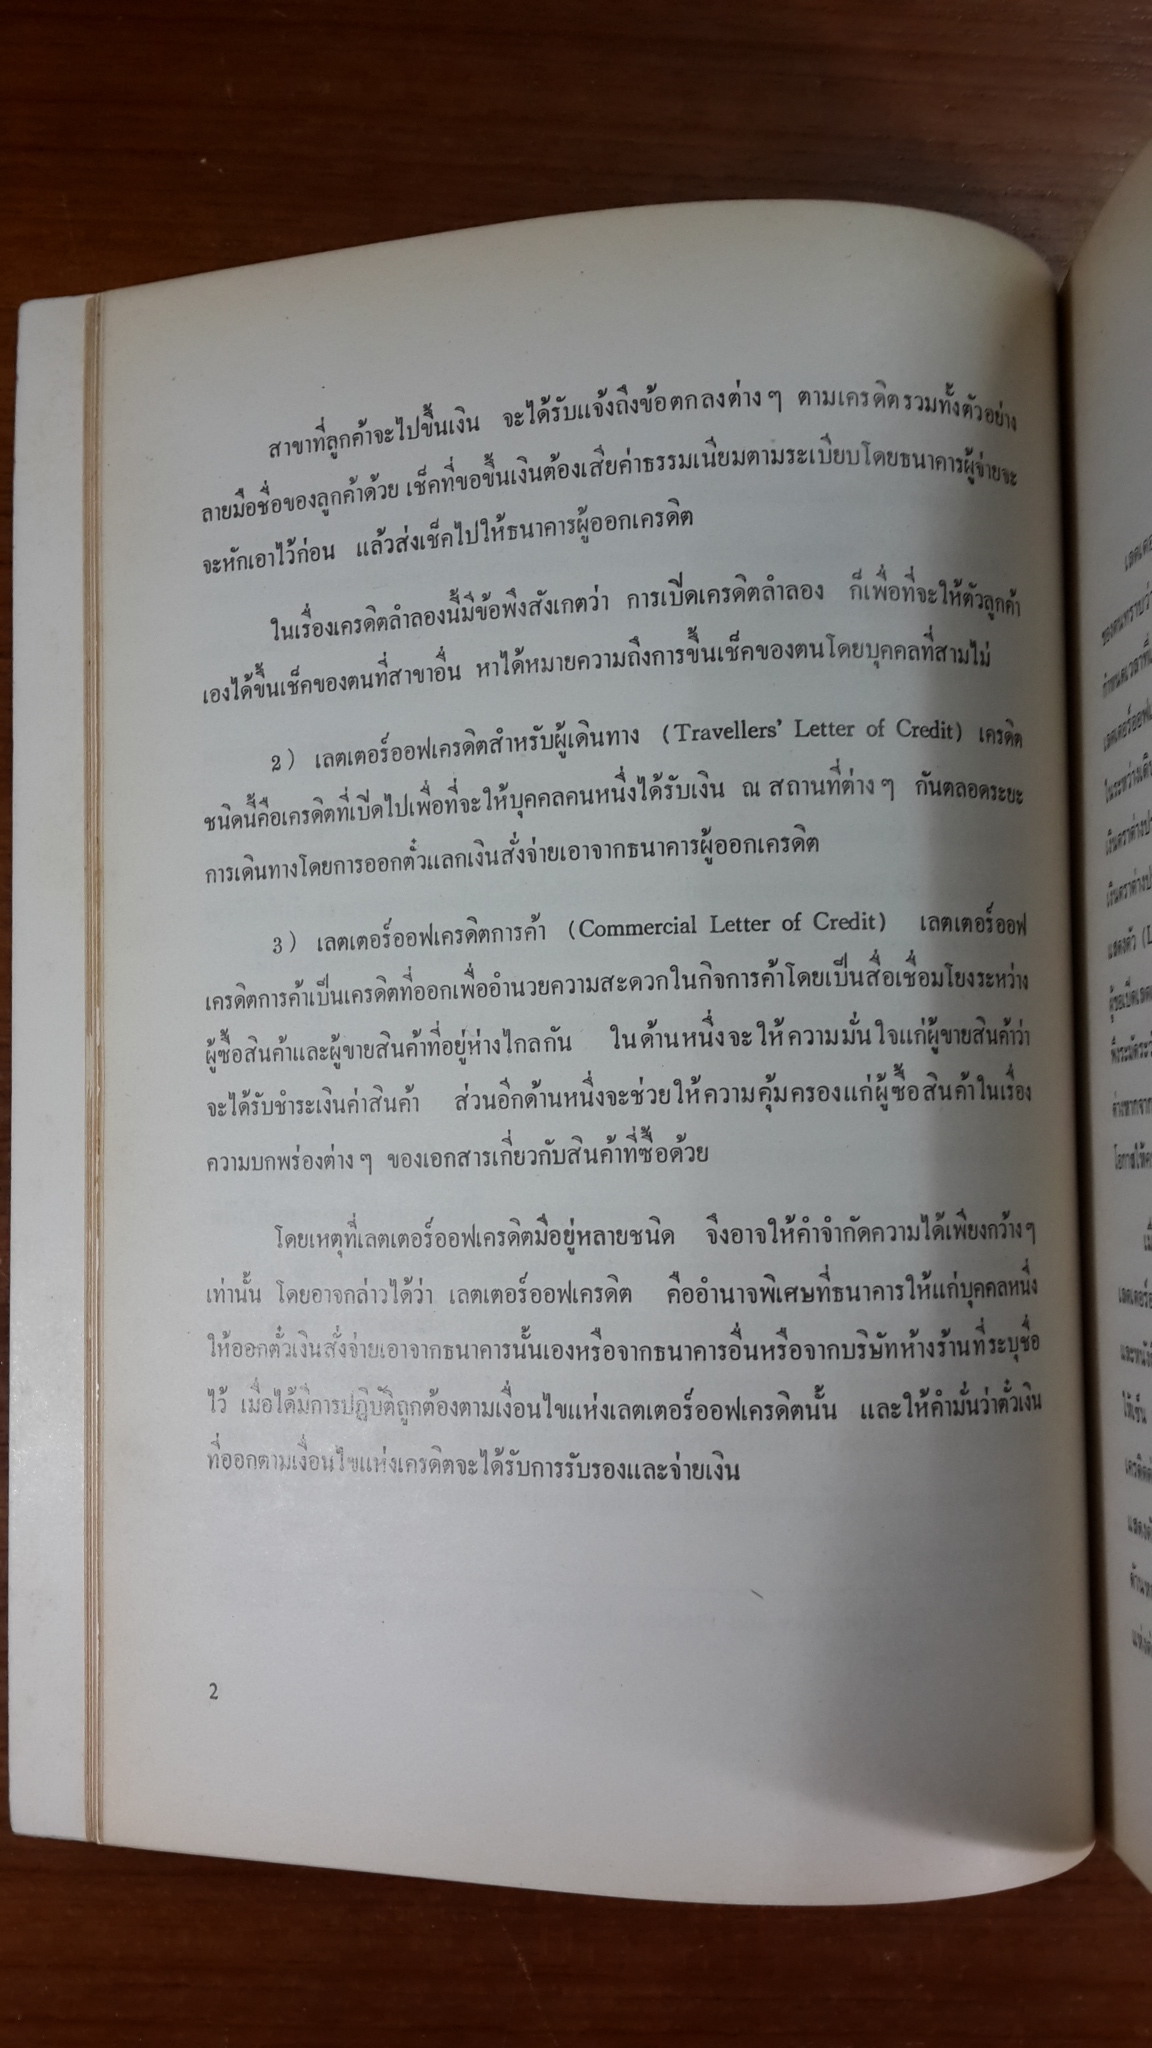 สาขาที่ลูกค้าจะไปขึ้นเงิน จะได้รับแจ้งถึงข้อตกลงต่างๆ ตามเครดิตรวมทั้งตัวอย่าง
ลายมือชื่อของลูกค้าด้วย เช็คที่ขอขึ้นเงินต้องเสียค่าธรรมเนียมตามระเบียบโดยธนาคารผู้จ่ายจะ
จะหักเอาไว้ก่อน แล้วส่งเช็คไปให้ธนาคารผู้ออกเครดิต
ในเรื่องเครดิตลำลองนี้มีข้อพึงสังเกตว่า การเปิดเครดิตลำลอง ก็เพื่อที่จะให้ตัวลูกค้า
เองได้ขึ้นเช็คของตนที่สาขาอื่น หาได้หมายความถึงการขึ้นเช็คของตนโดยบุคคลที่สามไม่
2) เลตเตอร์ออฟเครดิตสำหรับผู้เดินทาง (Travellers' Letter of Credit) เครดิต
ชนิดนี้คือเครดิตที่เปิดไปเพื่อที่จะให้บุคคลคนหนึ่งได้รับเงิน ณ สถานที่ต่างๆ กันตลอดระยะ
การเดินทางโดยการออกตั๋วแลกเงินสั่งจ่ายเอาจากธนาคารผู้ออกเครดิต
3) เลตเตอร์ออฟเครดิตการค้า (Commercial Letter of Credit) เลตเตอร์ออฟ
เครดิตการค้าเป็นเครดิตที่ออกเพื่ออำนวยความสะดวกในกิจการค้าโดยเป็นสื่อเชื่อมโยงระหว่าง
ผู้ซื้อสินค้าและผู้ขายสินค้าที่อยู่ห่างไกลกัน ในด้านหนึ่งจะให้ความมั่นใจแก่ผู้ขายสินค้าว่า
จะได้รับชำระเงินค่าสินค้า ส่วนอีกด้านหนึ่งจะช่วยให้ความคุ้มครองแก่ผู้ซื้อสินค้าในเรื่อง
ความบกพร่องต่างๆ ของเอกสารเกี่ยวกับสินค้าที่ซื้อด้วย
โดยเหตุที่เลตเตอร์ออฟเครดิตมีอยู่หลายชนิด จึงอาจให้คำจำกัดความได้เพียงกว้างๆ
เท่านั้น โดยอาจกล่าวได้ว่า เลตเตอร์ออฟเครดิต คืออำนาจพิเศษที่ธนาคารให้แก่บุคคลหนึ่ง
ให้ออกตั๋วเงินสั่งจ่ายเอาจากธนาคารนั้นเองหรือจากธนาคารอื่นหรือจากบริษัทห้างร้านที่ระบุชื่อ
ไว้ เมื่อได้มีการปฏิบัติถูกต้องตามเงื่อนไขแห่งเลตเตอร์ออฟเครดิตนั้น และให้คำมั่นว่าตั๋วเงิน
ที่ออกตามเงื่อนไขแห่งเครดิตจะได้รับการรับรองและจ่ายเงิน
2